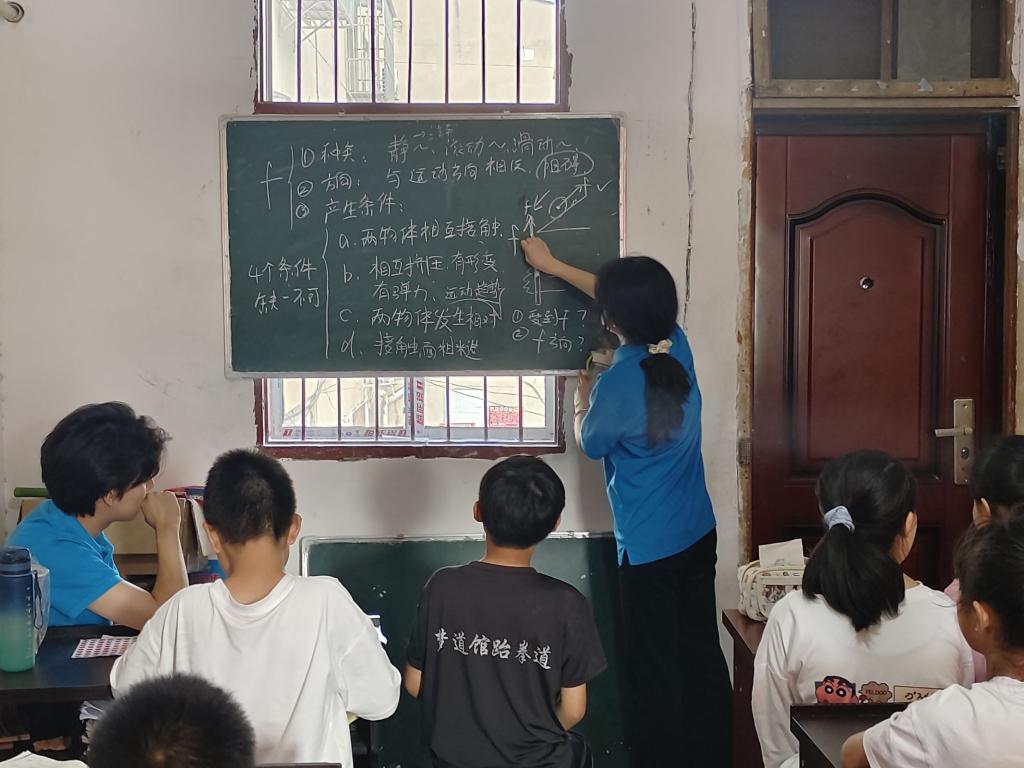 f ① 种类: 静～, 滚动～, 滑动～.
② 方向: 与运动方向相反. 阻碍
③ 产生条件:
4个条件
缺一不可
a. 两物体相互接触.
b. 相互挤压. 有形变.
有弹力、运动趋势
c. 两物体发生相对
d. 接触面粗糙
f
① 受到f?
② f方向?
梦道馆跆拳道